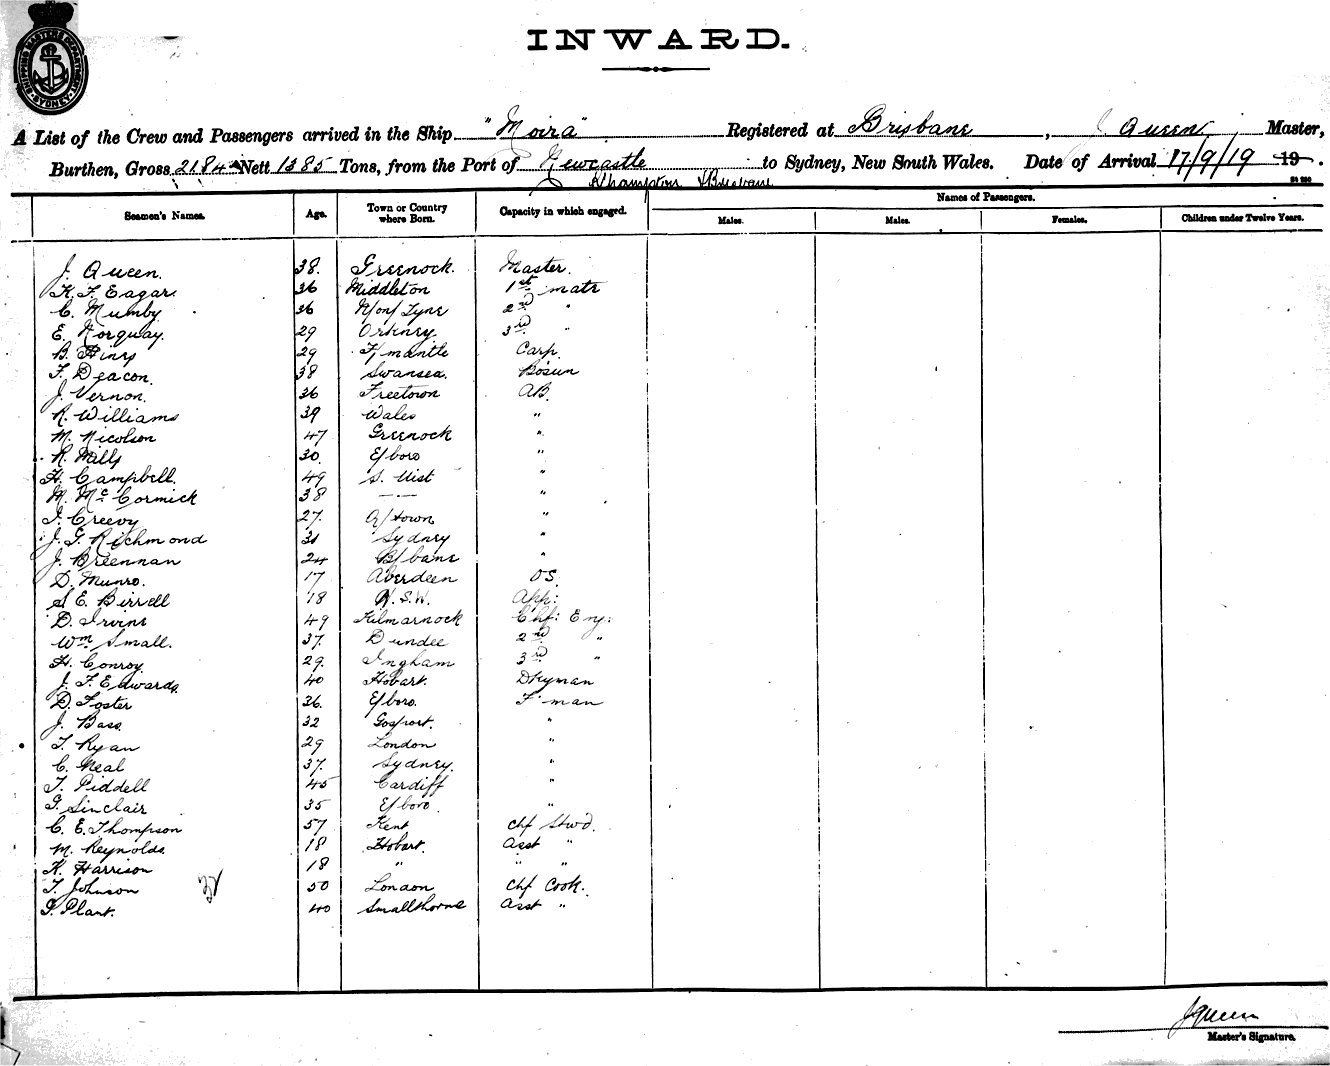 SHIPPING MASTER'S DEPARTMENT SYDNEY
INWARD.
A List of the Crew and Passengers arrived in the Ship "Moira" Registered at Brisbane, J Queen, Master,
Burthen, Gross 2184 Nett 1385 Tons, from the Port of Newcastle to Sydney, New South Wales. Date of Arrival 17/9/19 19 .
R'hampton & Brisbane
Seamen's Names. Age. Town or Country where Born. Capacity in which engaged. Names of Passengers.
Males. Males. Females. Children under Twelve Years.
J. Queen. 38. Greenock. Master.
K. F. Eagar. 36 Middleton 1st mate
C. Mumby 36 N/on/Tyne 2nd "
E. Norquay. 29 Orkney. 3rd "
B. Hines 29 F/mantle Carp.
F. Deacon. 38 Swansea. Bosun
J. Vernon. 36 Freetown AB.
R. Williams 39 Wales "
M. Nicolson 47 Greenock "
R. Mills 30. E/boro "
H. Campbell. 49 S. Uist "
M. McCormick 38 — — "
J. Creevy 27. Q/town "
J. G. Richmond 31 Sydney "
J. Breennan 24 B/bane "
D. Munro. 17 Aberdeen OS.
S E. Birrell 18 N.S.W. App:
D. Irvine 49 Kilmarnock Chf: Eng:
Wm Small. 37. Dundee 2nd "
H. Conroy. 29. Ingham 3rd "
J. F. Edwards. 40 Hobart. Dkyman
D. Foster 26. E/boro. F'man
J. Bass. 32 Gosport. "
T. Ryan 29 London "
C. Neal 37. Sydney. "
T. Piddell 45 Cardiff "
G. Sinclair 35 E/boro. "
C. E. Thompson 57 Kent Chf Stwd.
M. Reynolds. 18 Hobart. Asst "
K. Harrison 18 " " "
T. Johnson 32 50 London Chf Cook.
G. Plant. 40 Smallthorne Asst "
J Queen
Master's Signature.